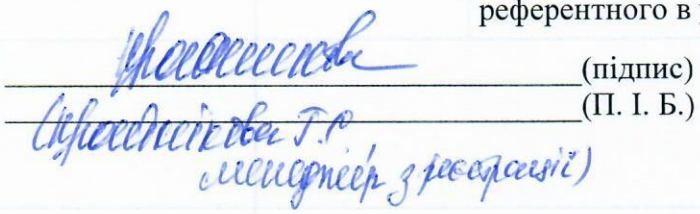 референтного в
(підпис)
(П. І. Б.)
Т.
менеджер з реєстрації)